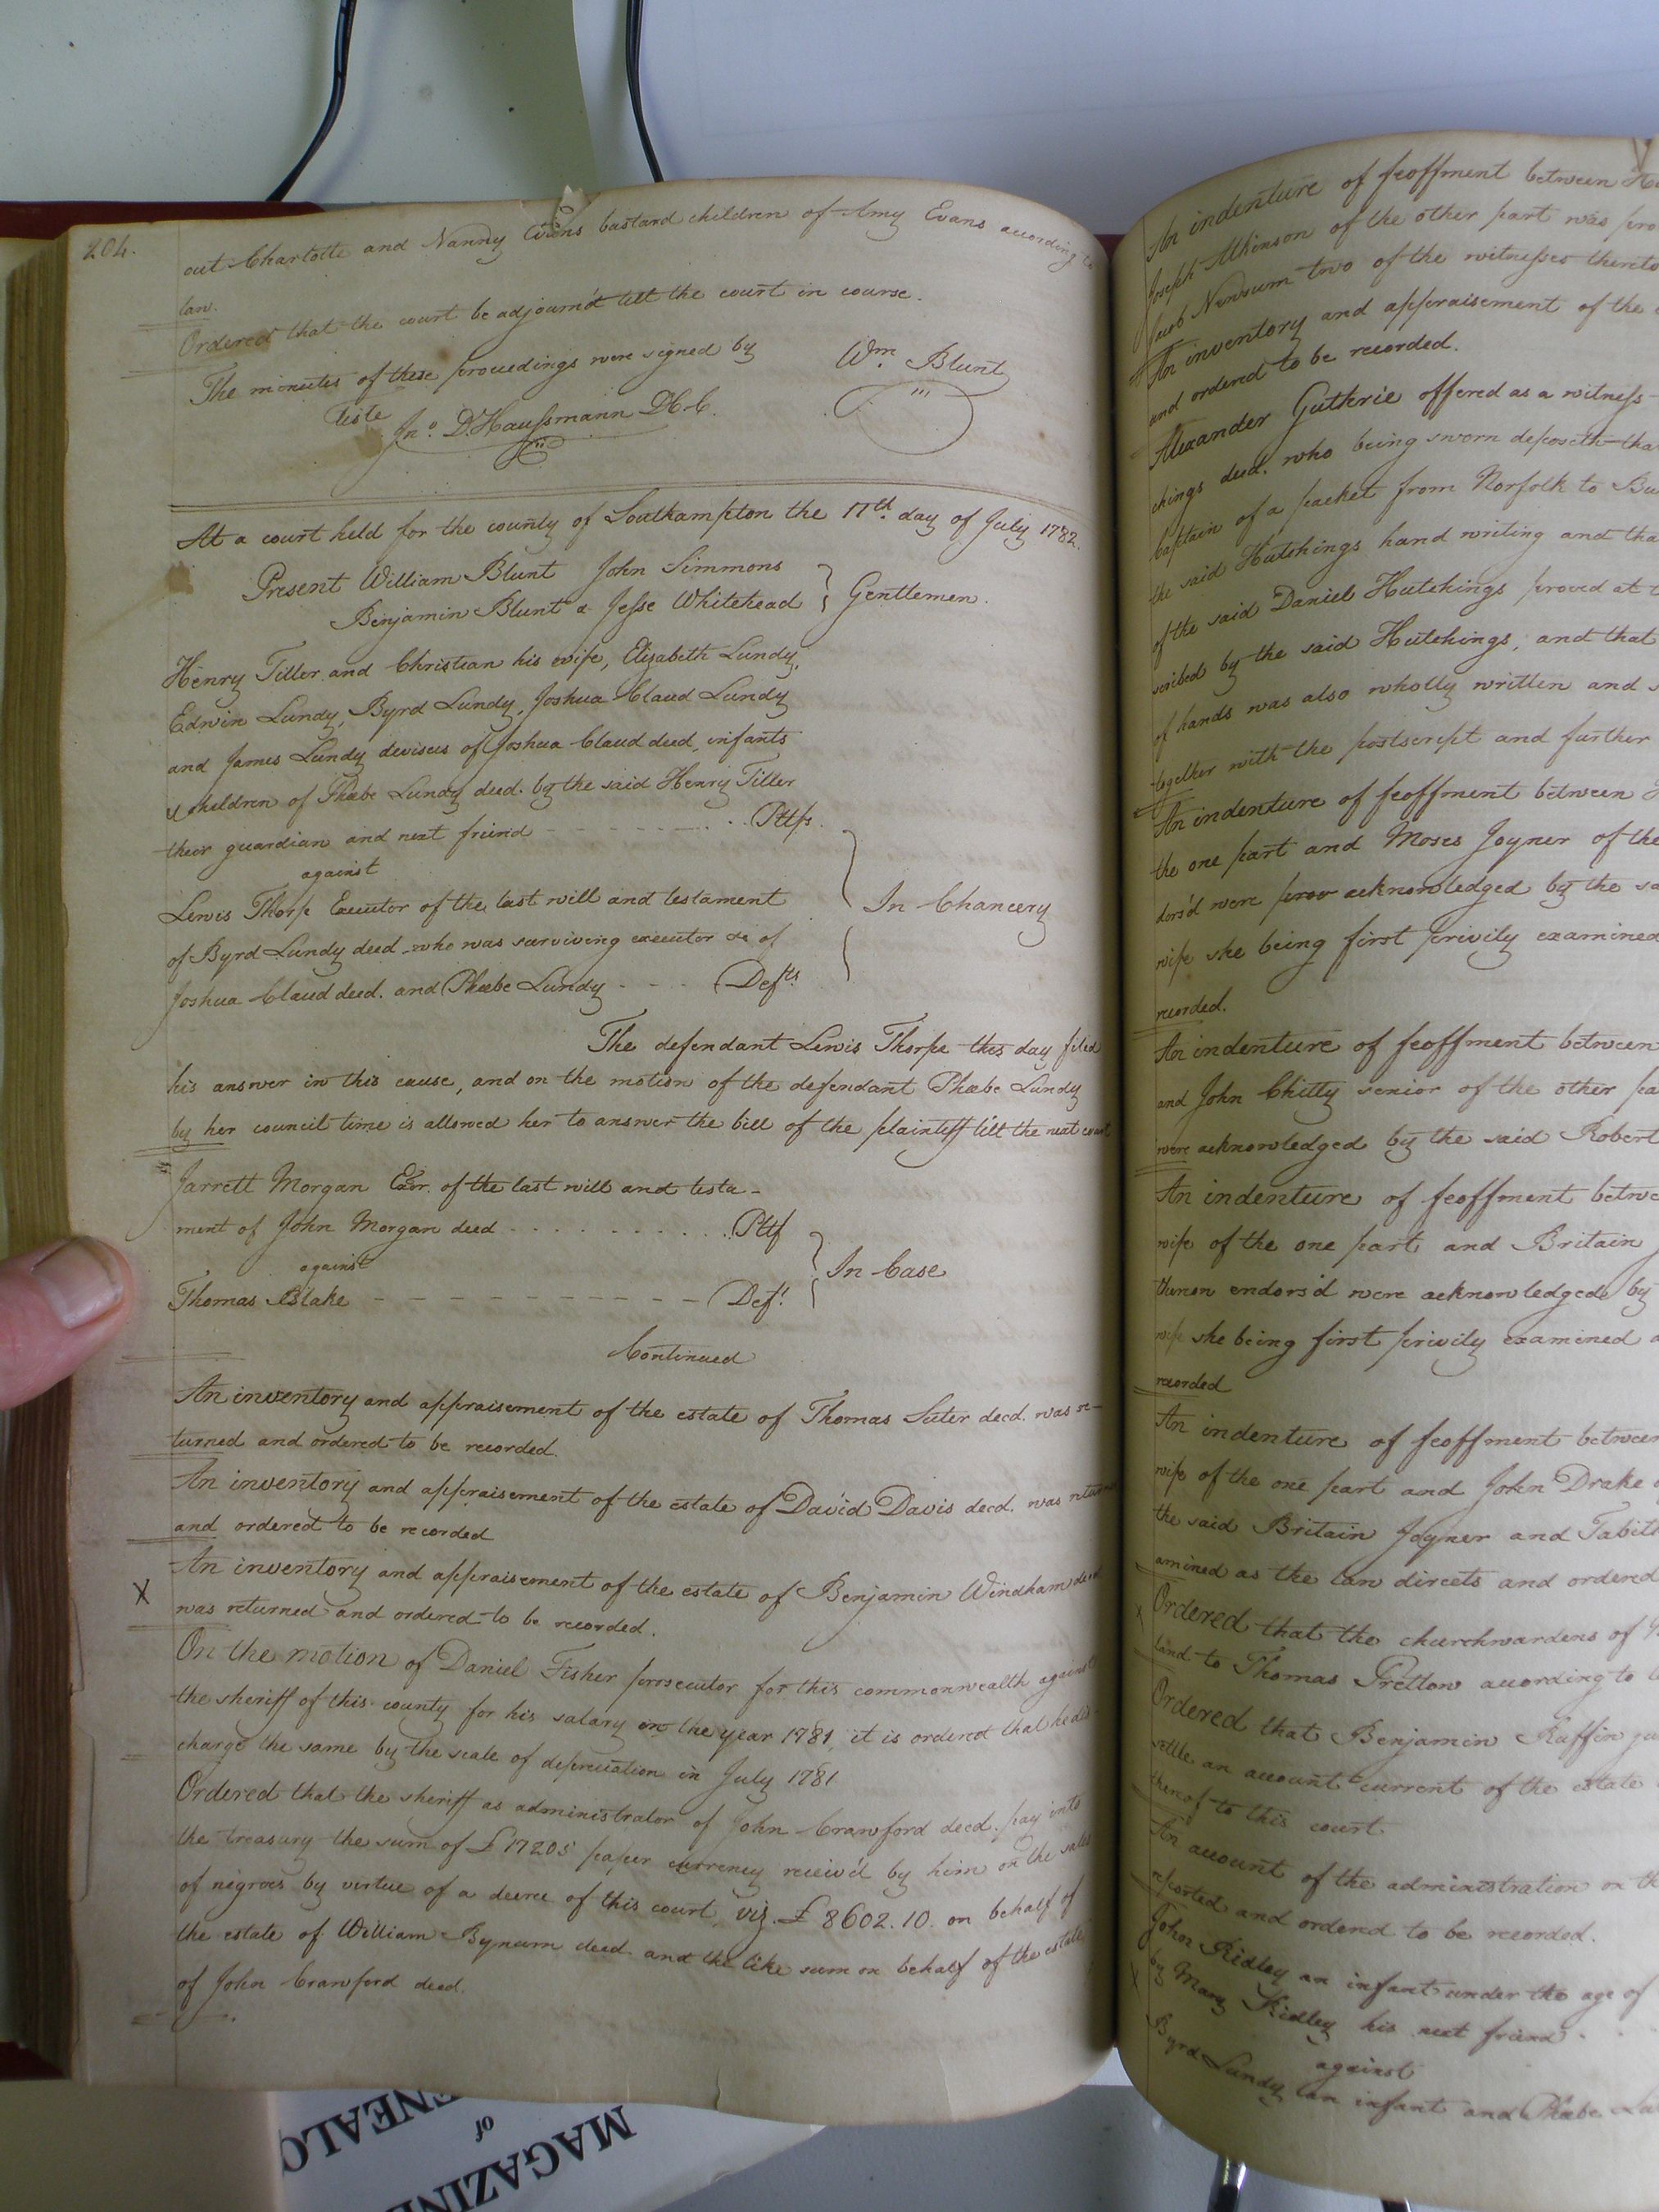 204.
out Charlotte and Nanny Evans bastard children of Amy Evans according to
law.
Ordered that the court be adjourn'd till the court in course.
The minutes of these proceedings were signed by
Wm. Blunt
Teste
Jno. D. Haussmann D.C.C.
At a court held for the county of Southampton the 11th. day of July 1782.
Present William Blunt John Simmons
Benjamin Blunt & Jesse Whitehead } Gentlemen.
Henry Tiller and Christian his wife, Elizabeth Lundy,
Edwin Lundy, Byrd Lundy, Joshua Claud Lundy
and James Lundy devisees of Joshua Claud deed, infants
& children of Phœbe Lundy deed. by the said Henry Tiller
their guardian and next friend - - - - - - - . . Pltfs.
against
Lewis Thorp Executor of the last will and testament
In Chancery
of Byrd Lundy deed who was surviving executor &c of
Joshua Claud deed. and Phœbe Lundy - - - Defts.
The defendant Lewis Thorpe this day filed
his answer in this cause, and on the motion of the defendant Phœbe Lundy
by her council time is allowed her to answer the bill of the plaintiff till the next court
Jarrett Morgan Exor. of the last will and testa-
ment of John Morgan deed . . . . . . . . . . . . Pltf
against
In Case
Thomas Blake - - - - - - - - - - - - Deft.
Continued
An inventory and appraisement of the estate of Thomas Suter decd. was re-
turned and ordered to be recorded.
An inventory and appraisement of the estate of David Davis decd. was return
and ordered to be recorded
X An inventory and appraisement of the estate of Benjamin Windham decd
was returned and ordered to be recorded.
On the motion of Daniel Fisher prosecutor for this commonwealth against
the sheriff of this county for his salary in the year 1781, it is ordered that he dis-
charge the same by the scale of depreciation in July 1781
Ordered that the sheriff as administrator of John Crawford decd. pay into
the treasury the sum of £17205 paper currency receiv'd by him on the sales
of negroes by virtue of a decree of this court, viz. £8602.10. on behalf of
the estate of William Bynum deed. and the like sum on behalf of the estate
of John Crawford deed.
An indenture of feoffment between
Joseph Atkinson of the other part was pro
Jacob Newsum two of the witnesses thereto
An inventory and appraisement of the
and ordered to be recorded.
Alexander Guthrie offered as a witness
chings deed. who being sworn deposeth tha
captain of a packet from Norfolk to
the said Hutchings hand writing and tha
of the said Daniel Hutchings proved at
scribed by the said Hutchings, and that
of hands was also wholly written and
together with the postscript and further
An indenture of feoffment between
the one part and Moses Joyner of the
dors'd were prov acknowledged by the sa
wife she being first privily examined
recorded.
An indenture of feoffment between
and John Chitty senior of the other pa
were acknowledged by the said Robert
An indenture of feoffment betwe
wife of the one part and Britain J
thereon endors'd were acknowledged by
wife she being first privily examined a
recorded
An indenture of feoffment between
wife of the one part and John Drake
the said Britain Joyner and Tabit
amined as the law directs and ordered
Ordered that the churchwardens of
land to Thomas Pretlow according to
Ordered that Benjamin Ruffin
settle an account current of the estate
thereof to this court.
An account of the administration on th
reported and ordered to be recorded.
John Ridley an infant under the age of
by Mary Ridley his next friend
against
Byrd Lundy an infant and Phœbe
MAGAZINE
of